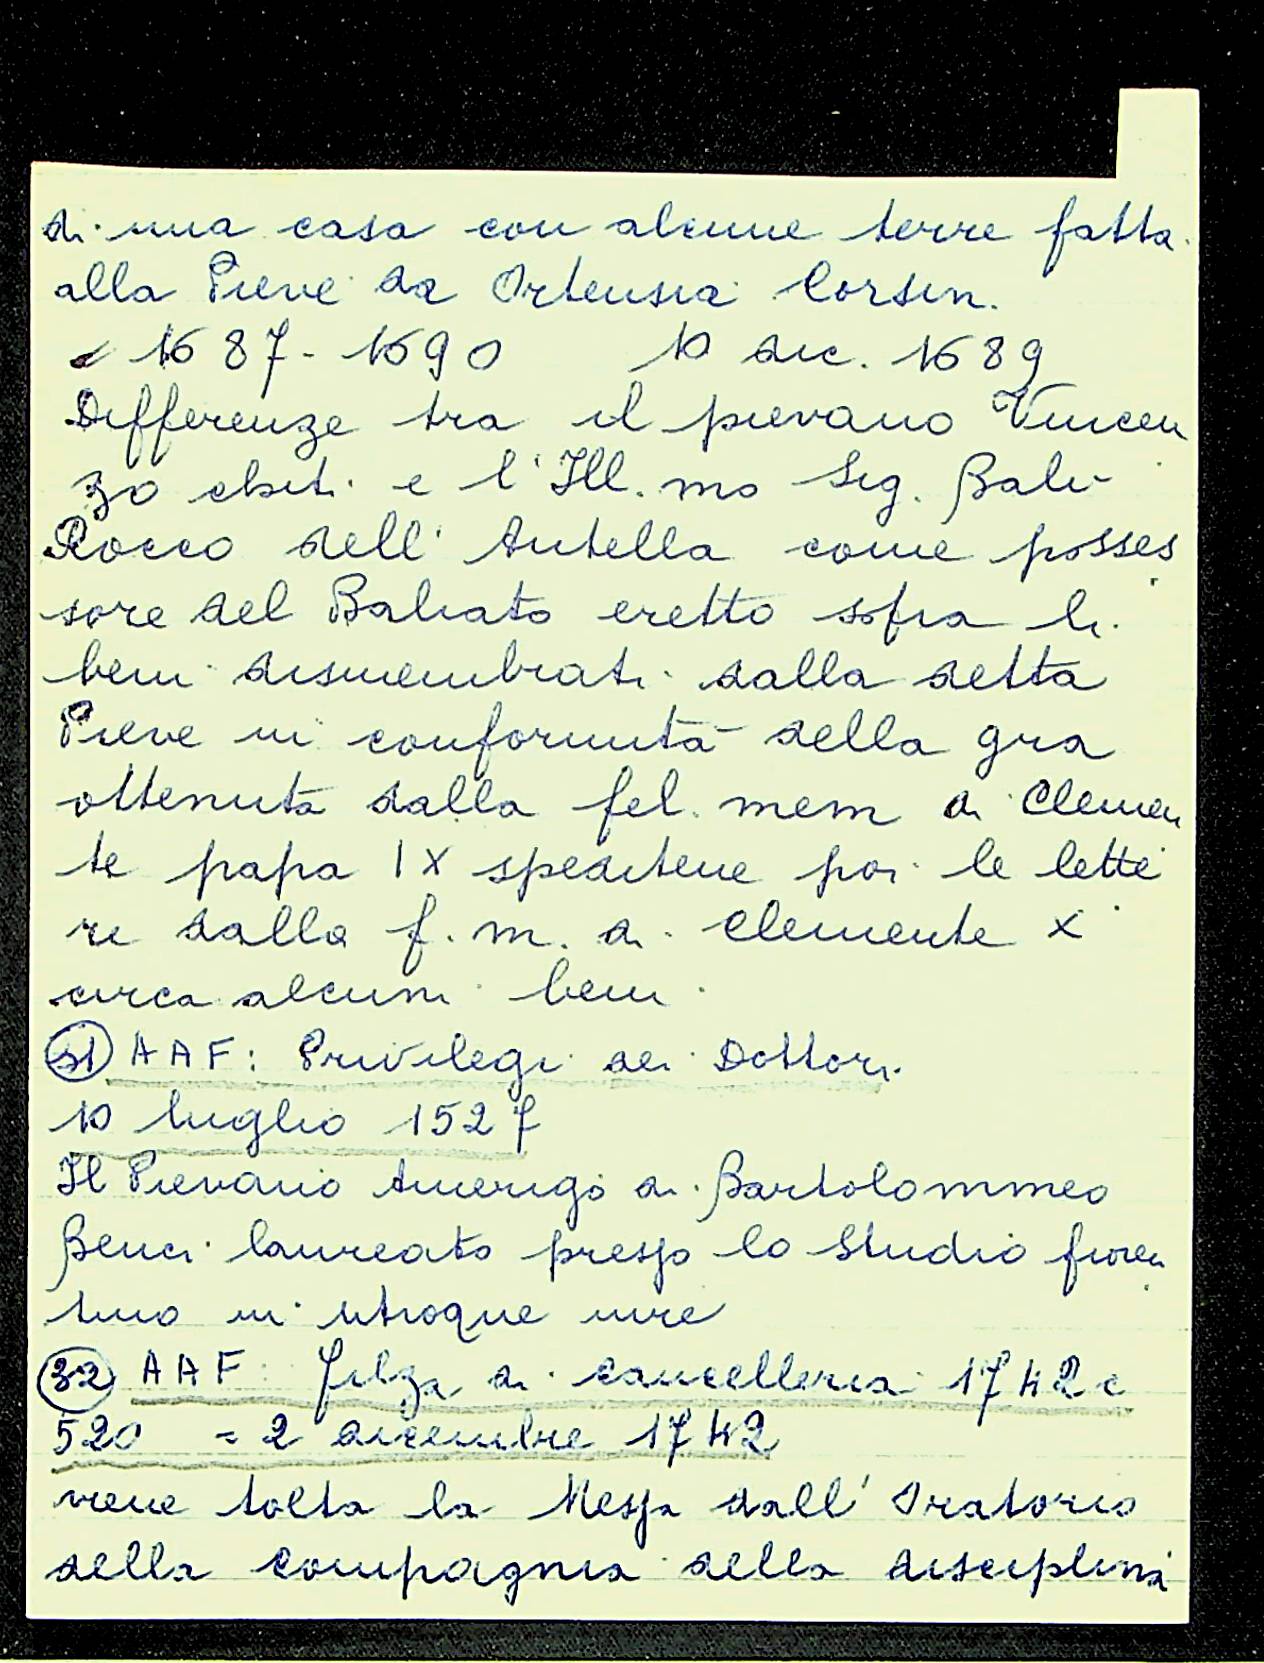 di una casa con alcune terre fatta
alla Pieve da Ortensia Corsin.
1687-1690 10 dic. 1689
Differenze tra il pievano Vincen
zo e l'Ill.mo Sig. Balì
Rocco dell'Antella come posses
sore del Baliato eretto sopra li
beni dismembrati dalla detta
Pieve in conformità della gra
ottenuta dalla fel. mem di Clemen
te papa IX speditene poi le lette
re dalla f. m. di Clemente X
circa alcuni beni.
31 AAF: Privilegi dei Dottori
10 luglio 1527
Il Pievano Amerigo di Bartolommeo
Benci laureato presso lo Studio fioren
tino in utroque iure
32 AAF: filza di cancelleria 1742 c
520 = 2 dicembre 1742
viene tolta la Messa dall'Oratorio
della compagnia della disciplina